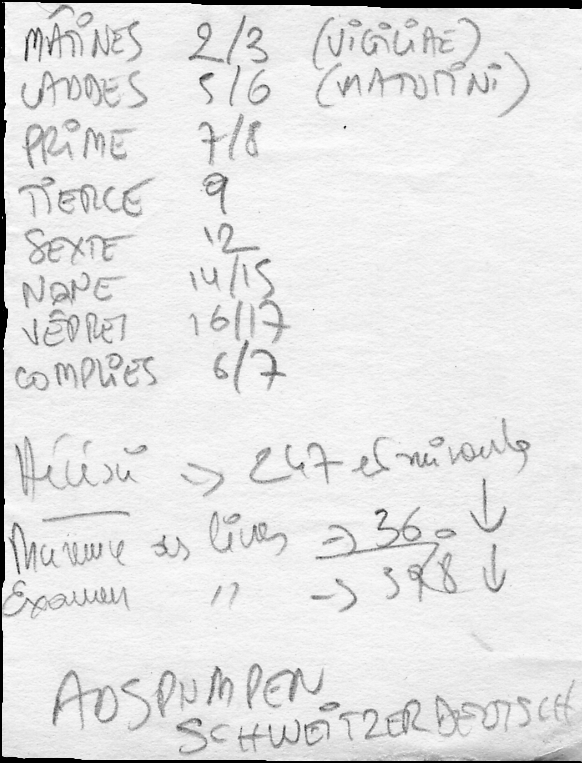 MÂTINES 2/3 (VIGILIAE)
LAUDES 5/6 (MATUTINI)
PRIME 7/8
TIERCE 9
SEXTE 12
NONE 14/15
VÊPRES 16/17
COMPLIES 6/7
⇒ 247 et suivantes
des livres ⇒ 36
Examen " → 398
ADSPUMPEN
SCHWEITZERDEUTSCH